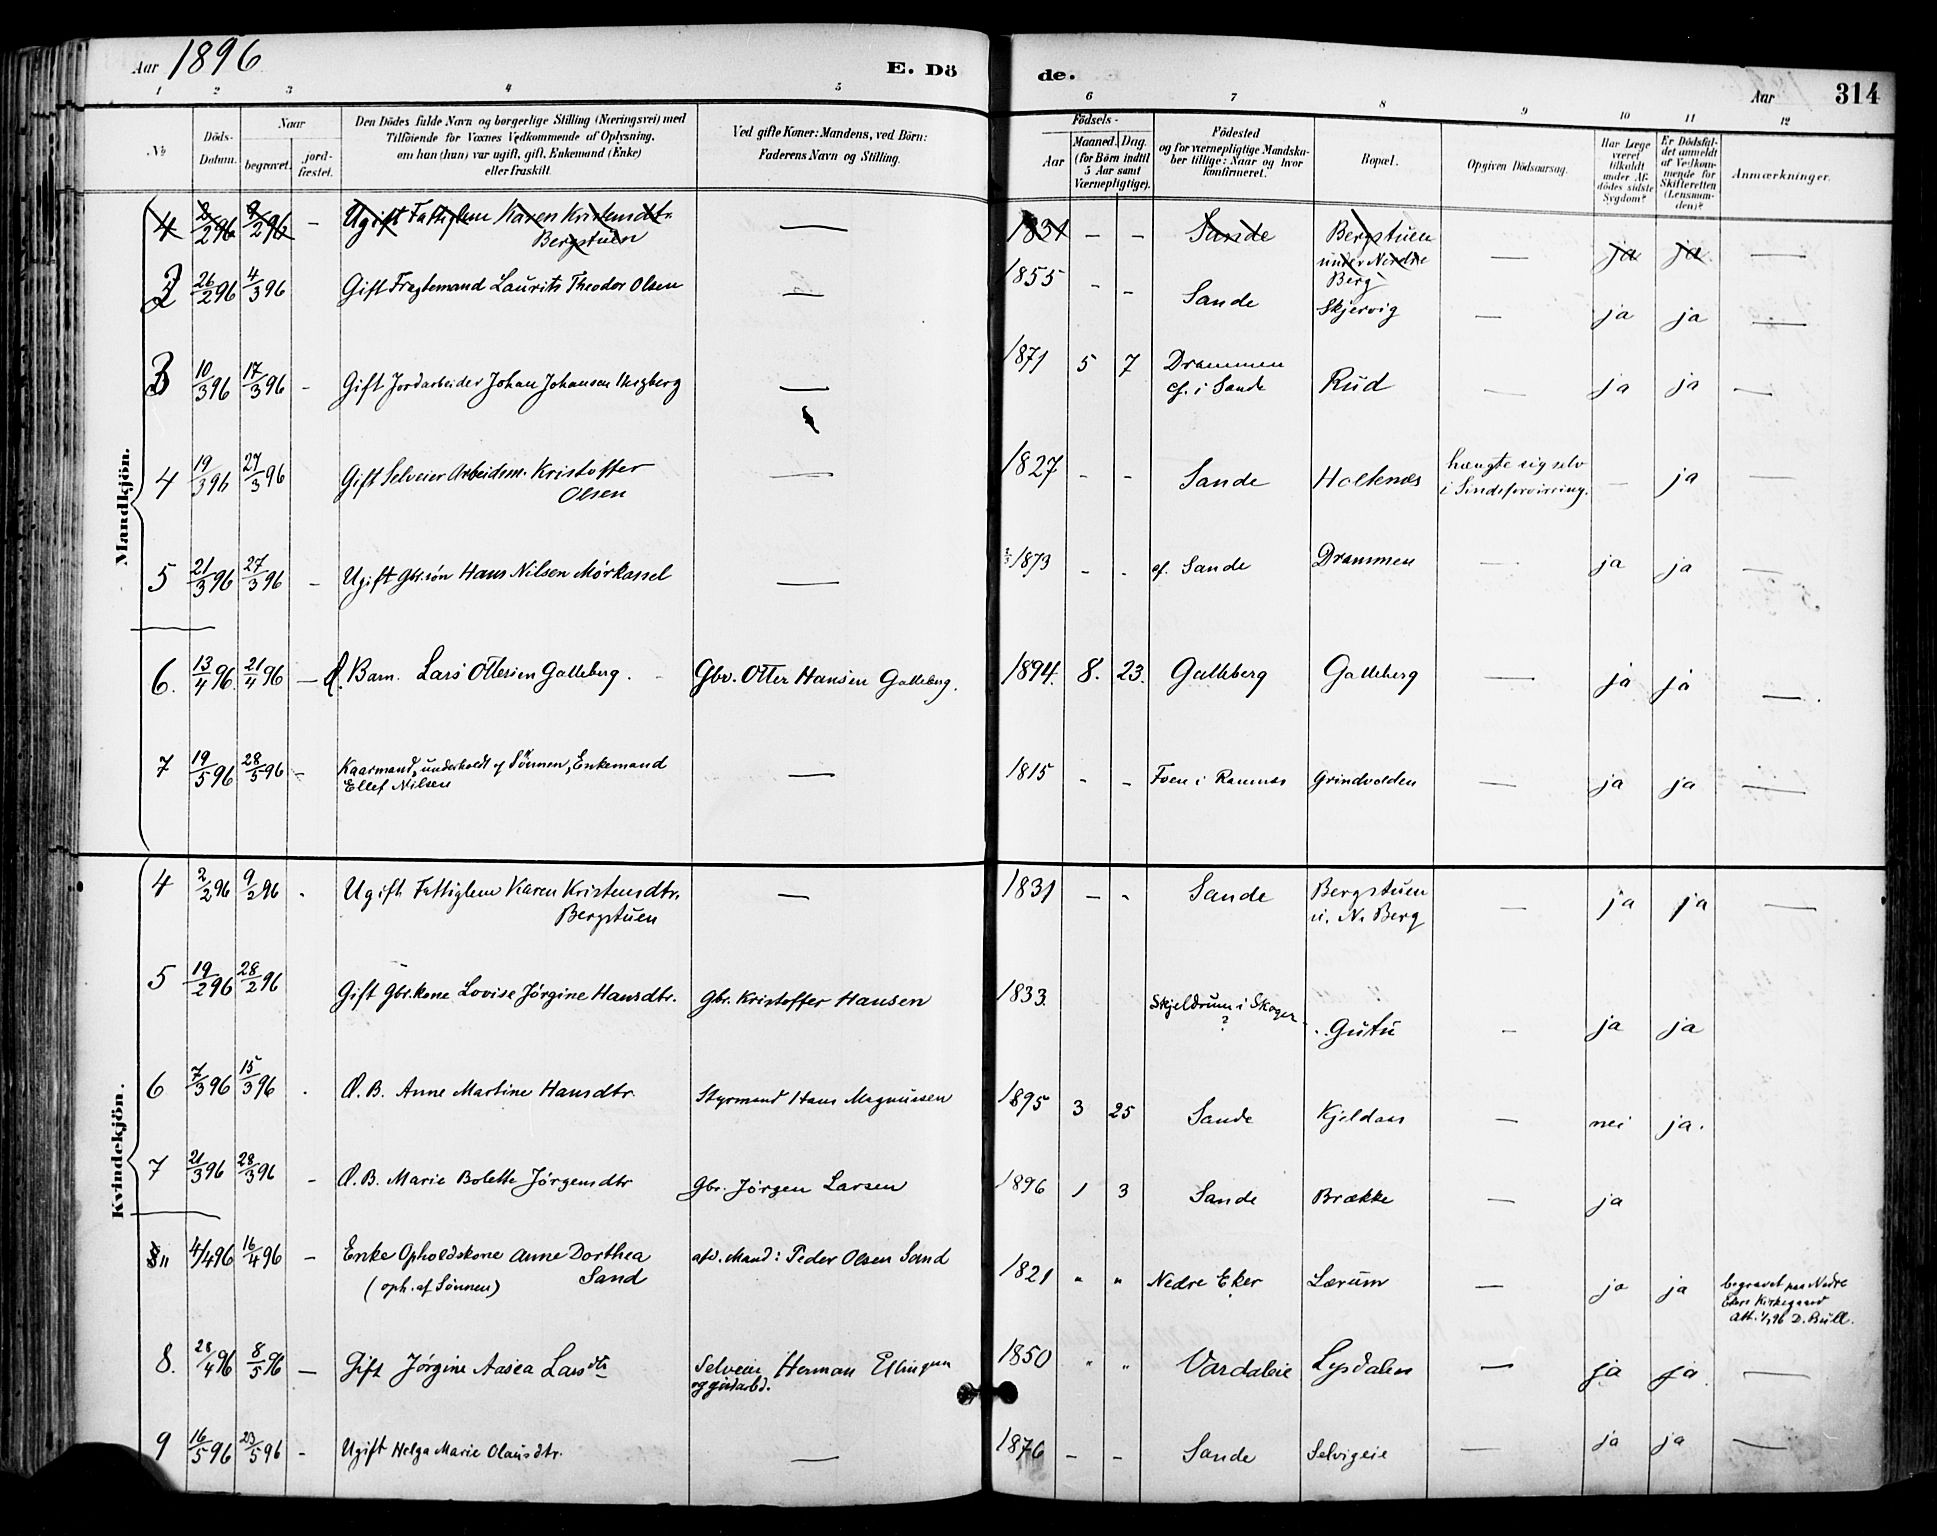 Aar 1896
E. Dö
de.
Aar
314
1 2 3 4 5 6 7 8 9 10 11 12
No
Döds-
Datum.
Naar
begravet.
jord-
fæstet.
Den Dödes fulde Navn og borgerlige Stilling (Næringsvei) med
Tilföiende for Voxnes Vedkommende af Oplysning,
om han (hun) var ugift, gift, Enkemand (Enke)
eller fraskilt.
Ved gifte Koner: Mandens, ved Börn:
Faderens Navn og Stilling.
Födsels-
Aar
Maaned. Dag.
(for Börn indtil
5 Aar samt
Værnepligtige).
Födested
og for værnepligtige Mandska-
ber tillige: Naar og hvor
konfirmeret.
Bopæl.
Opgiven Dödsaarsag.
Har Læge
været
tilkaldt
under Af-
dödes sidste
Sygdom?
Er Dödsfal-
det anmeldt
af Vedkom-
mende for
Skifteretten
(Lensman-
den)?
Anmærkninger.
Mandkjön.
4 2/2 96 9/2 96 – Ugift Fattiglem Karen Kristensdtr. — 1831 – – Sande Bergstuen — ja ja —
Bergstuen under Nordre
Berg
2 26/2 96 4/3 96 Gift Fragtemand Laurits Theodor Olsen — 1855 – – Sande Skjervig — ja ja —
3 10/3 96 17/3 96 – Gift Jordarbeider Johan Johansen — 1871 5 7 Drammen Rud — ja ja —
cf. i Sande
4 19/3 96 27/3 96 Gift Selveier Arbeidsm. Kristoffer — 1827 – – Sande Holtenæs hængte sig selv — ja —
Olsen i Sindsforvirring.
5 21/3 96 27/3 96 – Ugift Gbr.søn Hans Nilsen Mørkassel — 1873 – – cf. Sande Drammen — ja ja —
6. 13/4 96 21/4 96 — Æ. Barn. Lars Ottersen Galleberg. Gbr. Otter Hansen Galleberg. 1894. 8. 23. Galleberg Galleberg — ja ja —
7 19/5 96 28/5 96 – Kaarmand, underholdt af Sønnen, Enkemand — 1815 – – Foen i Ramnæs Grindvolden — ja ja —
Ellef Nilsen
Kvindekjön.
4 2/2 96 9/2 96 . Ugift Fattiglem Karen Kristensdtr. — 1831 – – Sande Bergstuen — ja ja —
Bergstuen u. N. Berg
5 19/2 96 28/2 96 Gift Gbr.kone Lovise Jørgine Hansdtr. Gbr. Kristoffer Hansen 1833. Skjeldrum i Skoger Gutu — ja ja
?
6 7/3 96 15/3 96 . Æ. B. Anne Martine Hansdtr Styrmand Hans Magnussen 1895 3 25 Sande Kjeldaas — nei ja.
7 21/3 96 28/3 96 – Æ. B. Marie Bolette Jørgensdtr Gbr. Jørgen Larsen 1896 1 3 Sande Brække — ja
8 " 4/4 96 16/4 96 – Enke Opholdskone Anne Dorthea afd. Mand: Peder Olsen Sand 1821 " " Nedre Eker Lærum — ja ja begravet paa Nedre
(oph. af Sønnen) Sand Ekers Kirkegaard
Att. D. Bull.
8. 28/4 96 8/5 96 — Gift Jørgine Aasea Larsdtr Selveier Herman Ellingsen 1850 " " Vardaleie Lysdalen — ja ja —
9 16/5 96 23/5 96 – Ugift Helga Marie Olausdtr. — 1876 – – Sande Selvigeie — ja ja —